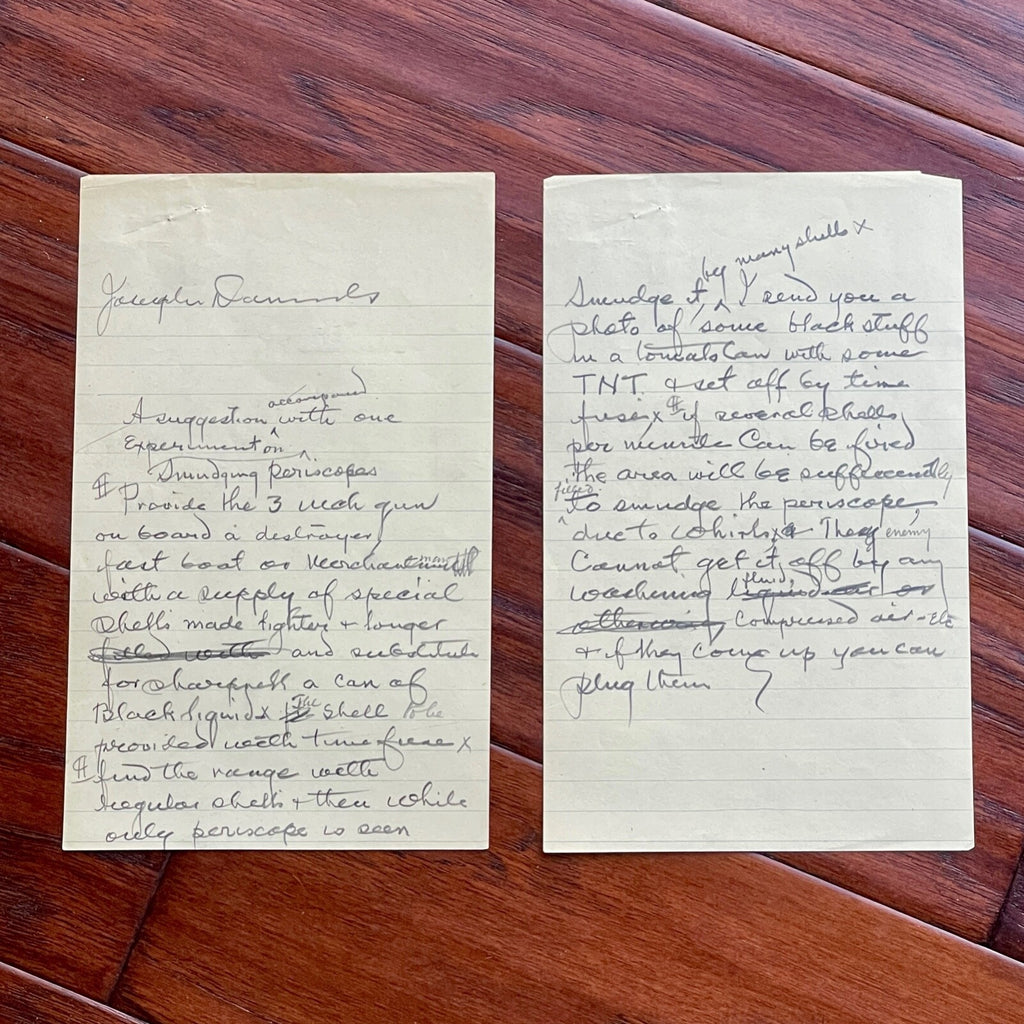 Joseph Daniels
accompanied
A suggestion ^ with one
Experiment on ^
Smudging periscopes
¶ Provide the 3 inch gun
on board a destroyer,
fast boat or Merchantman
with a supply of special
shells made lighter + longer
filled with and substitute
for sharpnell a can of
Black liquid x The Shell to be
provided with time fuse x
¶ find the range with
regular shells + then while
only periscope is seen
by many shells x
Smudge it ^ I send you a
photo of some black stuff
in a tomato Can with some
TNT. & set off by time
fuse x ¶ if several shells
per minute Can be fired
the area will be sufficiently
filled
^ to smudge the periscope,
due to whirls x & They enemy
Cannot get it off by any
fluid,
washing liquid air or
otherwise Compressed air - Etc
+ if they come up you can
plug them